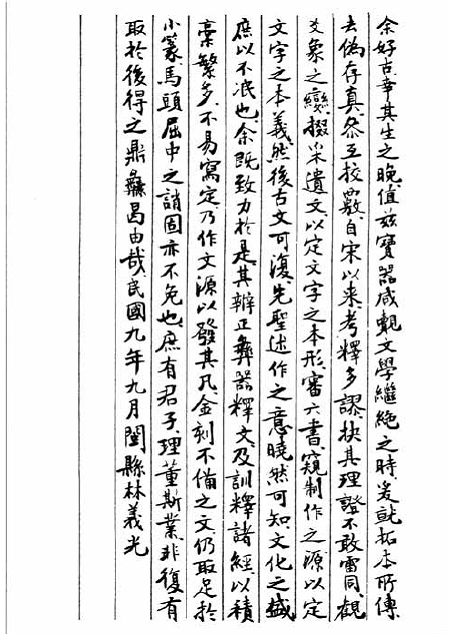 余好古幸其生之晚值兹寶器咸覩文學繼絶之時爰就拓本所傳
去偽存真叅互校覈自宋以來考釋多謬抉其理證不敢雷同觀
爻象之變掇采遺文以定文字之本形審六書窺制作之源以定
文字之本義然後古文可復先聖述作之意曉然可知文化之盛
庶以不泯也余既致力於是其辨正彝器釋文及訓釋諸經以積
稾繁多不易寫定乃作文源以發其凡金刻不備之文仍取足於
小篆馬頭屈中之誚固亦不免也庶有君子理董斯業非復有
取於後得之鼎彝曷由哉民國九年九月閩縣林義光